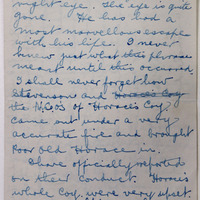 right eye. The eye is quite
gone. He has had a
most marvellous escape
with his life. I never
knew just what this phrase
meant until this time and
I shall never forget how
Stevenson and Horace's Coy
the N.C.O's of "Horace's Coy"
came out under a very
accurate fire and brought
poor old Horace in.
I have officially reported
on their conduct. Horace's
whole Coy. were very upset.